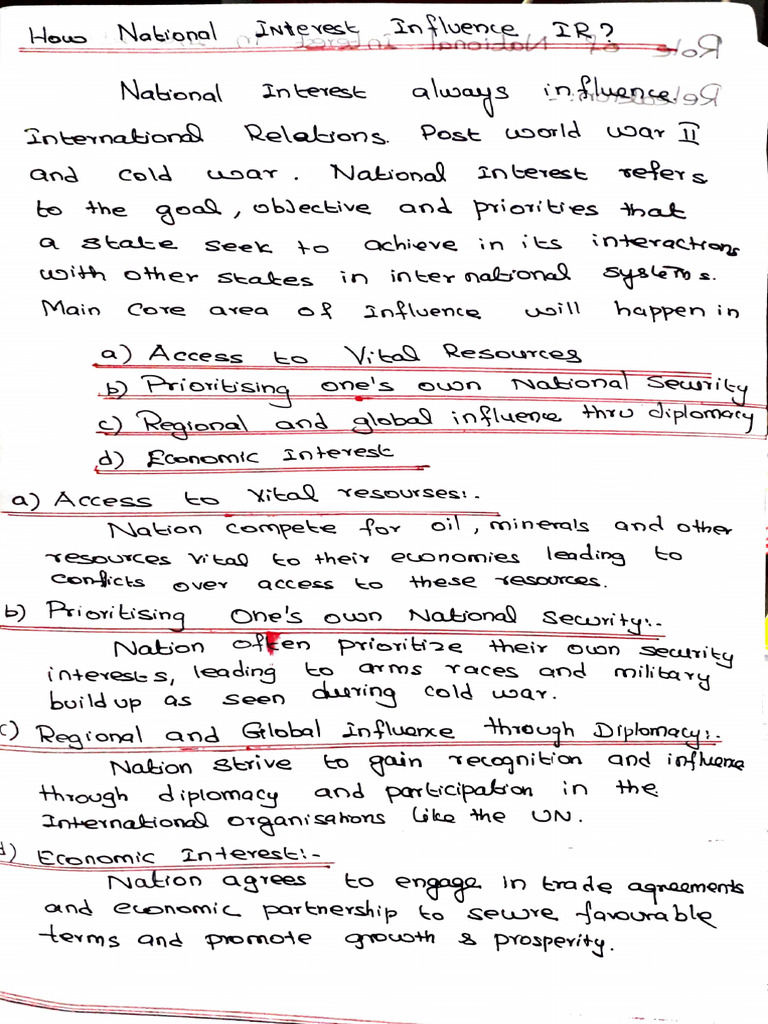 How National Interest Influence IR?
National Interest always influence
International Relations. Post world war II
and cold war. National Interest refers
to the goal, objective and priorities that
a state seek to achieve in its interactions
with other states in international systems.
Main core area of Influence will happen in
a) Access to Vital Resources
b) Prioritising one's own National Security
c) Regional and global influence thru diplomacy
d) Economic Interest
a) Access to Vital resourses:-
Nation compete for oil, minerals and other
resources vital to their economies leading to
conflicts over access to these resources.
b) Prioritising One's own National Security:-
Nation often prioritize their own security
interests, leading to arms races and military
build up as seen during cold war.
c) Regional and Global Influence through Diplomacy:-
Nation strive to gain recognition and influence
through diplomacy and participation in the
International organisations like the UN.
d) Economic Interest:-
Nation agrees to engage in trade agreements
and economic partnership to secure favourable
terms and promote growth & prosperity.